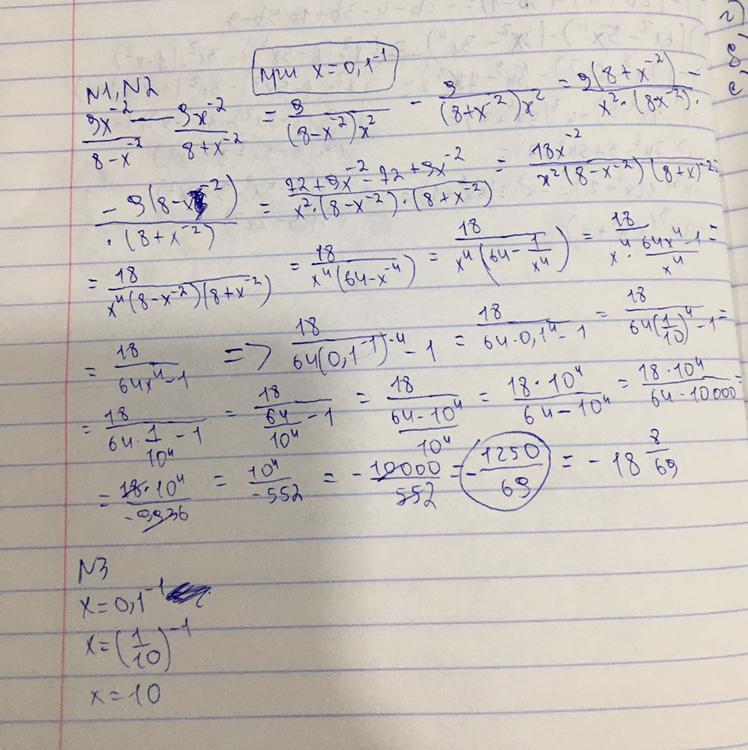 при x=0,1⁻¹
N1, N2
9x⁻²/(8-x⁻²) - 9x⁻²/(8+x⁻²) = 9/((8-x⁻²)x²) - 9/((8+x⁻²)x²) = 9(8+x⁻²)-/(x²·(8-x⁻²)·
-9(8-x⁻²)/(·(8+x⁻²)) = (72+9x⁻²-72+9x⁻²)/(x²·(8-x⁻²)·(8+x⁻²)) = 18x⁻²/(x²(8-x⁻²)(8+x)⁻²) =
= 18/(x⁴(8-x⁻²)(8+x⁻²)) = 18/(x⁴(64-x⁻⁴)) = 18/(x⁴(64-1/x⁴)) = 18/(x⁴·(64x⁴-1)/x⁴) =
= 18/(64x⁴-1) => 18/(64(0,1⁻¹)⁻⁴-1) = 18/(64·0,1⁴-1) = 18/(64(1/10)⁴-1) =
= 18/(64·1/10⁴-1) = 18/(64/10⁴-1) = 18/((64-10⁴)/10⁴) = 18·10⁴/(64-10⁴) = 18·10⁴/(64-10000) =
= 18·10⁴/-9936 = 10⁴/-552 = -10000/552 = -1250/69 = -18 8/69
N3
x=0,1⁻¹
x=(1/10)⁻¹
x=10
г)